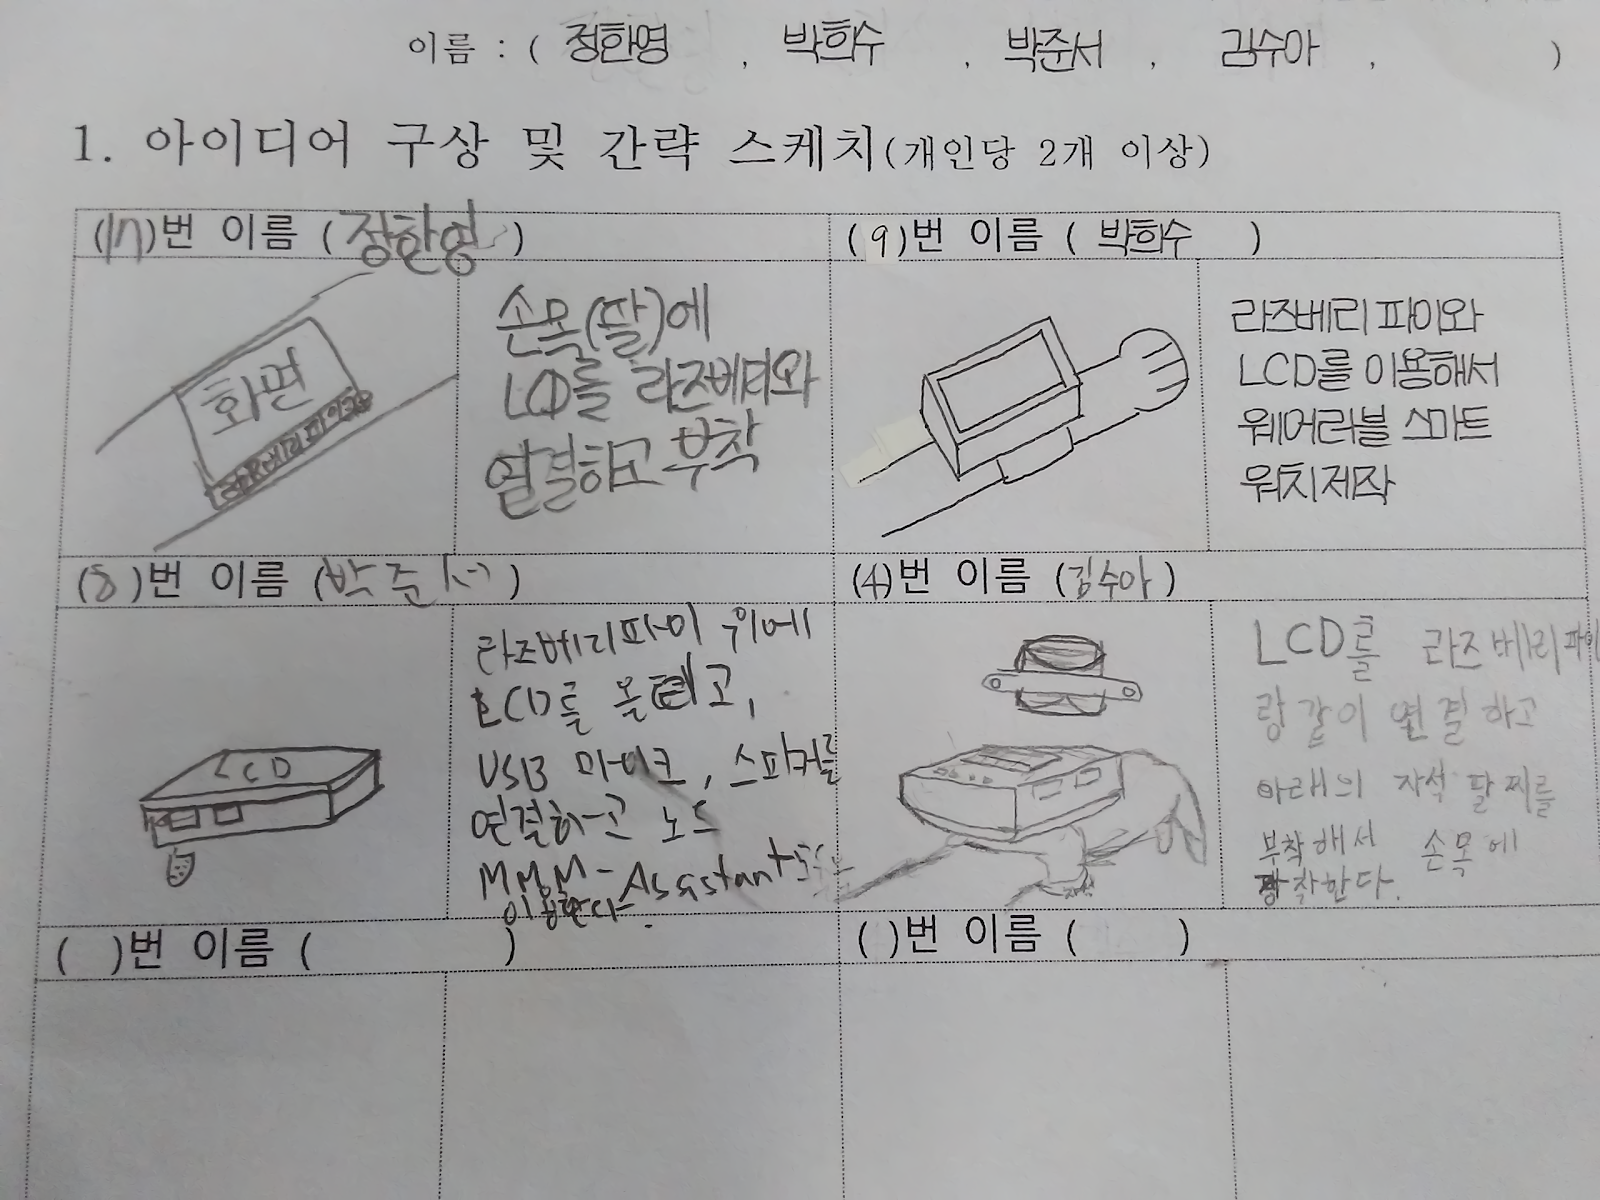 이름 : ( 정한영 , 박희수 , 박준서 , 김수아 , )
1. 아이디어 구상 및 간략 스케치(개인당 2개 이상)
(17)번 이름 (정한영)
화면
라즈베리파이
손목(팔)에
LCD를 라즈베리와
연결하고 부착
(9)번 이름 ( 박희수 )
라즈베리 파이와
LCD를 이용해서
웨어러블 스마트
워치제작
(8)번 이름 (박준서)
LCD
라즈베리파이 위에
LCD를 올리고,
USB 마이크, 스피커를
연결하고
MMM-Assistant
이용한다.
(4)번 이름 (김수아)
LCD를 라즈베리파이
랑 같이 연결하고
아래의 자석 팔찌를
부착해서 손목에
장착한다.
( )번 이름 ( )
( )번 이름 ( )